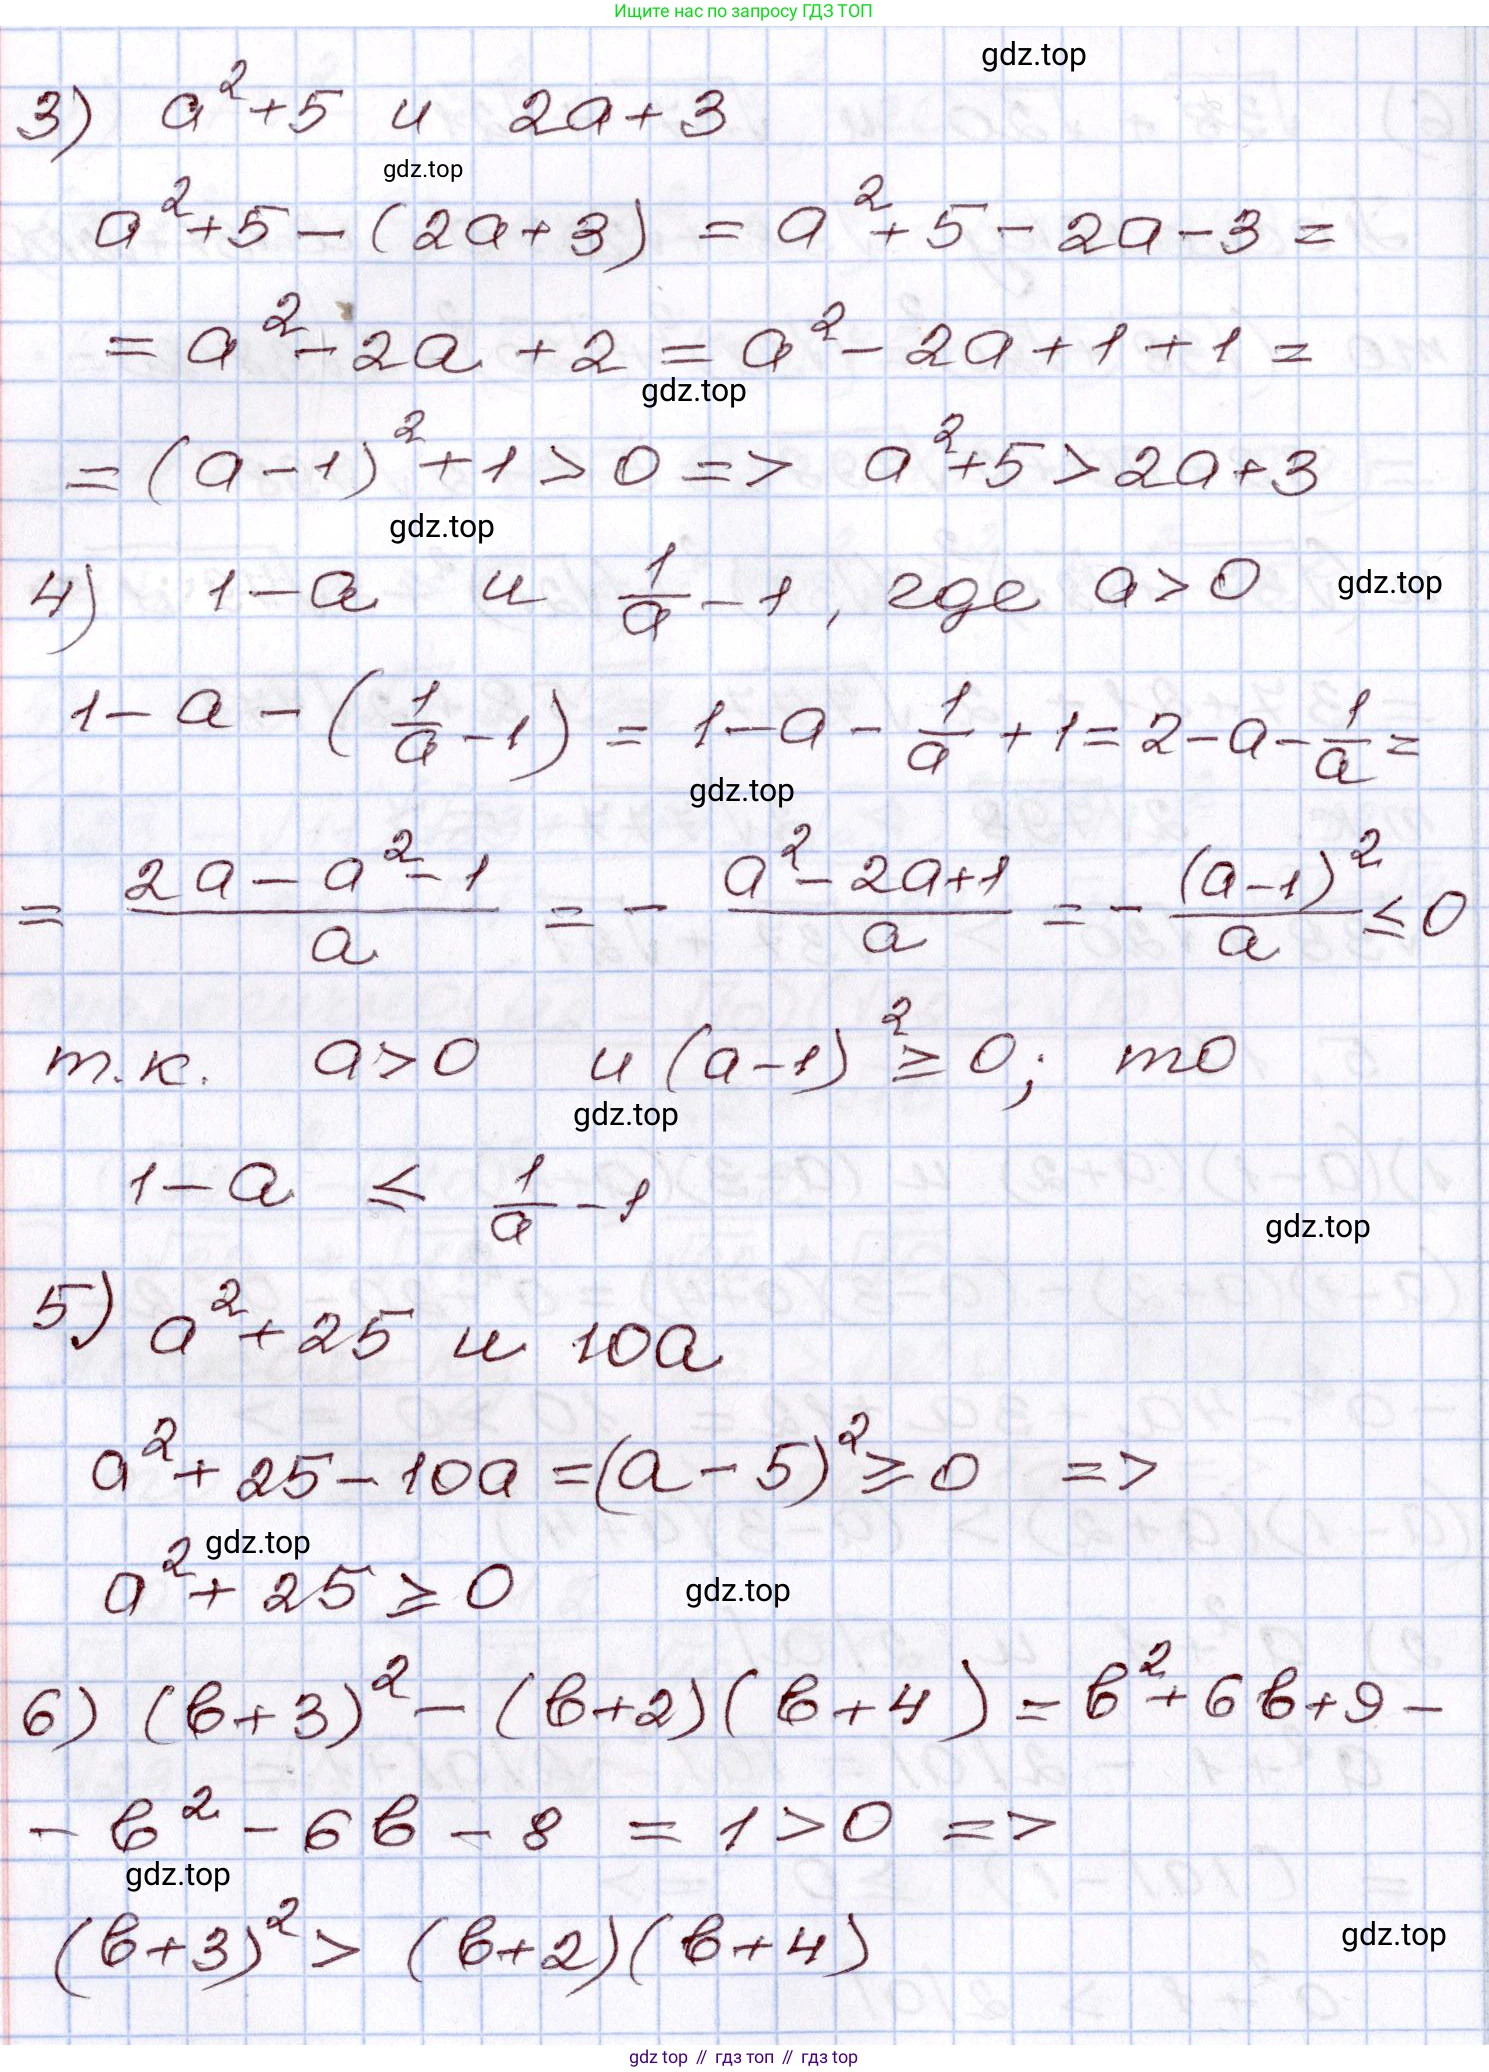 Ищите нас по запросу ГДЗ ТОП
gdz.top
3) a²+5 и 2a+3
gdz.top
a²+5-(2a+3) = a²+5-2a-3=
=a²-2a+2=a²-2a+1+1=
gdz.top
=(a-1)²+1>0=> a²+5>2a+3
gdz.top
4) 1-a и 1/a-1, где a>0 gdz.top
1-a-(1/a-1) = 1-a-1/a+1=2-a-1/a=
gdz.top
= (2a-a²-1)/a = -(a²-2a+1)/a = -(a-1)²/a ≤0
т.к. a>0 и (a-1)²≥0; то
gdz.top
1-a ≤ 1/a-1
gdz.top
5) a²+25 и 10a
a²+25-10a=(a-5)²≥0 =>
gdz.top
a²+25≥0
gdz.top
6) (в+3)²-(в+2)(в+4)=в²+6в+9-
-в²-6в-8 = 1>0 =>
gdz.top
(в+3)²>(в+2)(в+4)
gdz.top
gdz top // гдз топ // гдз top